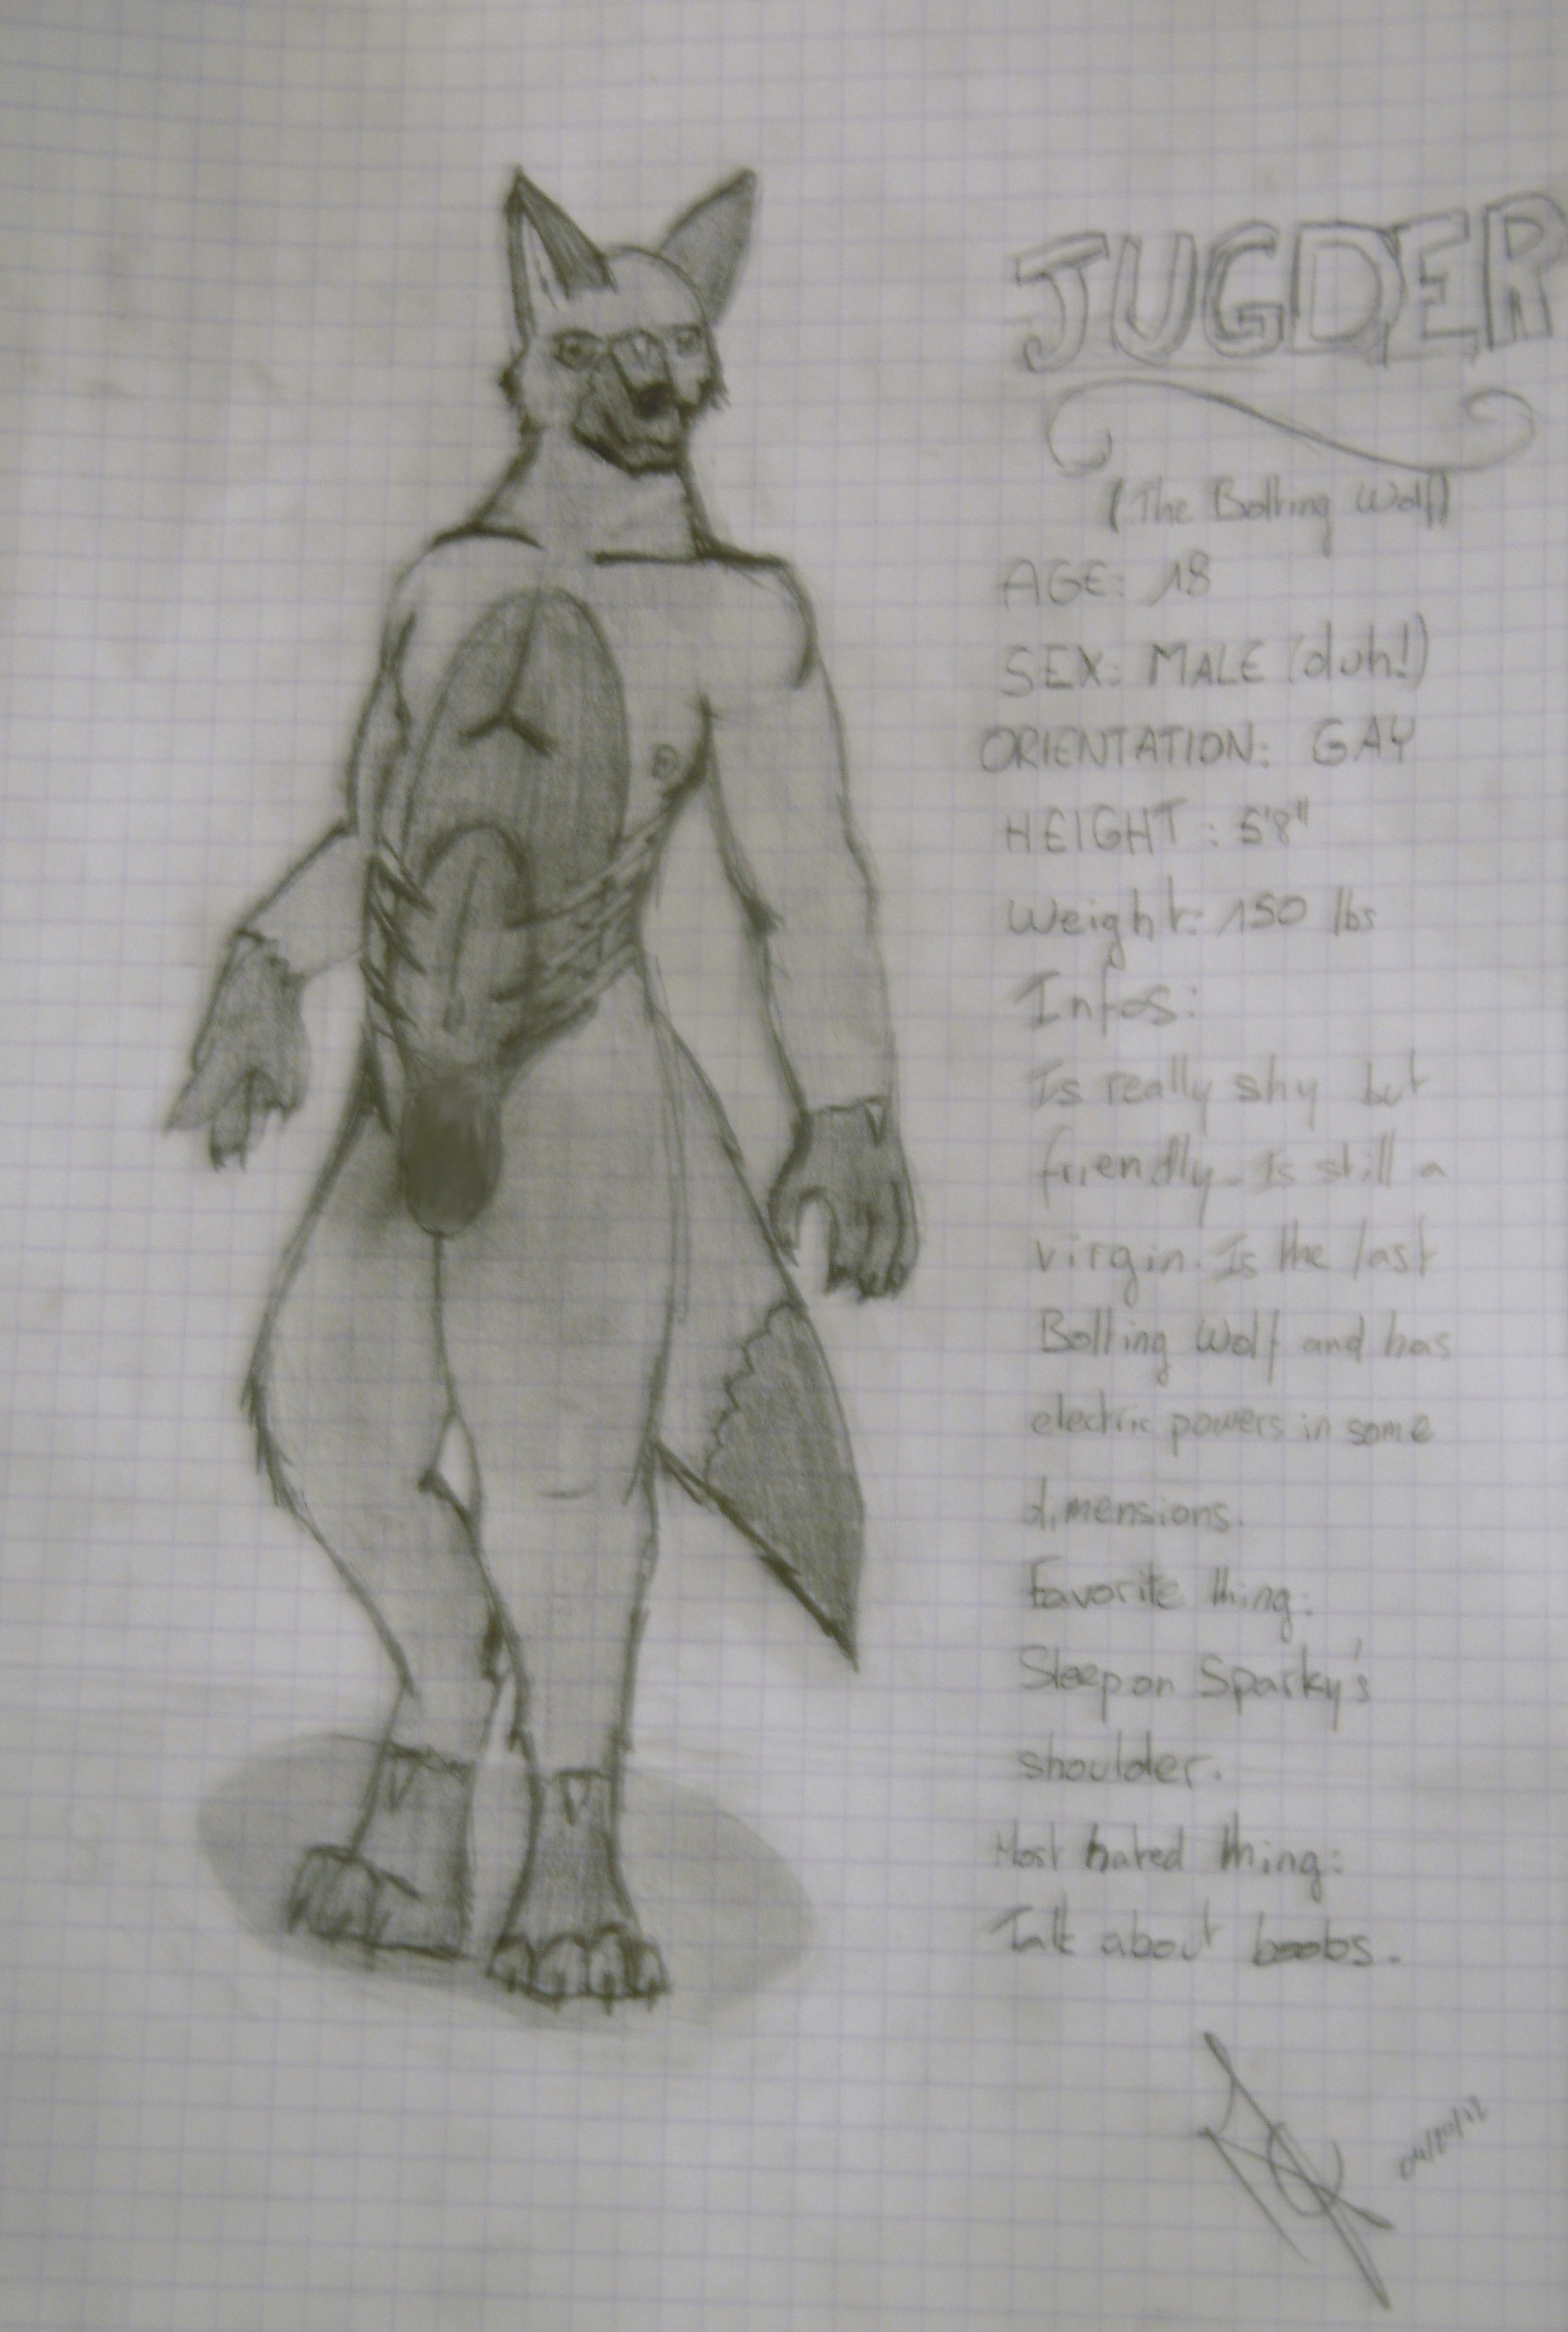 JUGDER
(The Bolting Wolf)
AGE: 18
SEX: MALE (duh!)
ORIENTATION: GAY
HEIGHT: 5'8"
Weight: 150 lbs
Infos:
Is really shy but
friendly. Is still a
virgin. Is the last
Bolting Wolf and has
electric powers in some
dimensions.
Favorite thing:
Sleep on Sparky's
shoulder.
Most hated thing:
Talk about boobs.